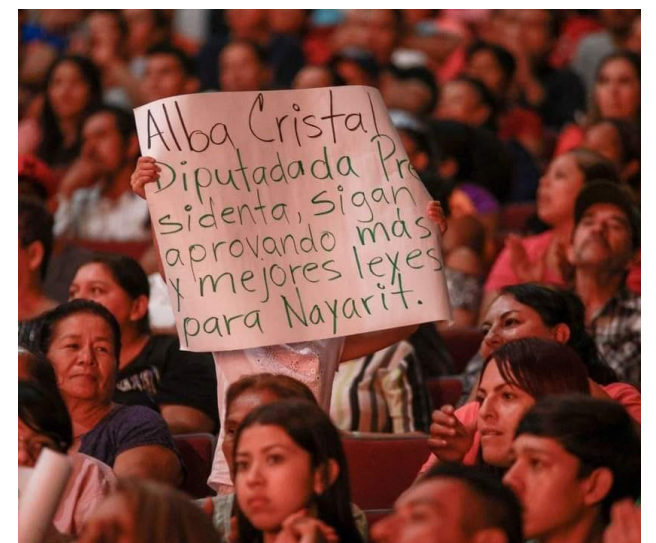 Alba Cristal
Diputadada Pre
sidenta, sigan
aprovando más
y mejores leyes
para Nayarit.